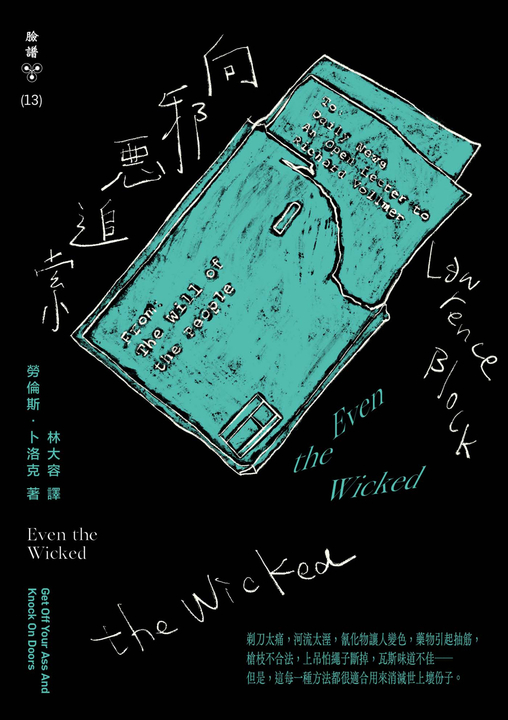 臉譜
(13)
向邪惡追索
To:
Daily News
An Open Letter to
Richard Vollmer
From:
The Will of
the People
Lawrence
Block
勞倫斯．卜洛克 著
林大容 譯
Even
the
Wicked
Even the
Wicked
the Wicked
Get Off Your Ass And
Knock On Doors
剃刀太痛，河流太溼，氰化物讓人變色，藥物引起抽筋，
槍枝不合法，上吊怕繩子斷掉，瓦斯味道不佳——
但是，這每一種方法都很適合用來消滅世上壞份子。